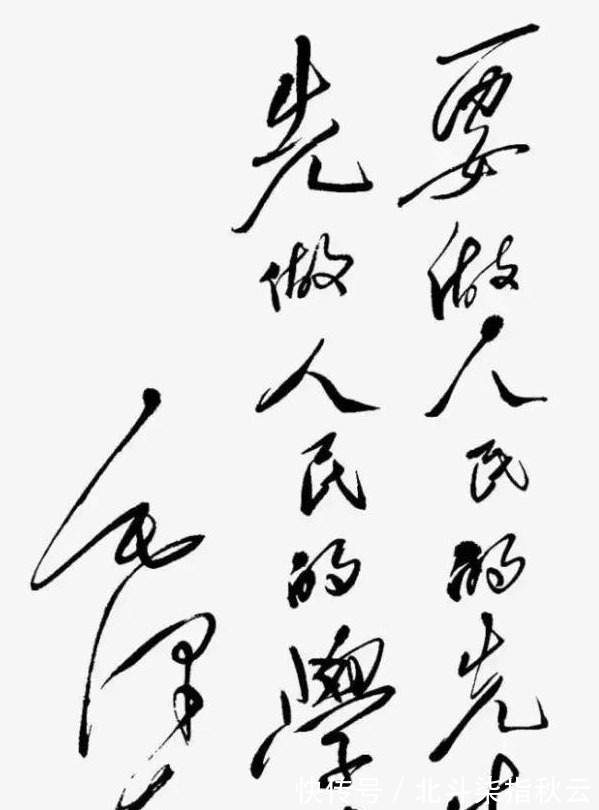 要做人民的先
先做人民的學
毛泽
快传号 / 北斗柒指秋云